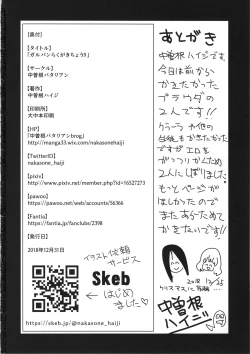 【奥付】
【タイトル】
「ガルパンらくがきちょう9」
【サークル】
中曽根バタリアン
【著作】
中曽根ハイジ
【印刷所】
大中本印刷
【HP】
「中曽根バタリアンbrog」
http://manga33.wix.com/nakasonehaiji
【TwitterID】
nakasone_haiji
【pixiv】
http://www.pixiv.net/member.php?id=16527273
【pawoo】
https://pawoo.net/web/accounts/56366
【Fantia】
https://fantia.jp/fanclubs/2398
【発行日】
2018年12月31日
イラスト依頼
サービス
Skeb
←はじめ
ました
https://skeb.jp/@nakasone_haiji
あとがき
中曽根ハイジです。
今日は前から
かきたかった
プラウダの
2人です!!
クラーラや他の
も かきたかった
ですが エロを
がっつりかくため
2人にしぼりまし
た もっとページが
ほしかったので
また あらためて
かきたいです!!
2018 12/25
クリスマスに
中曽根
ハイジ